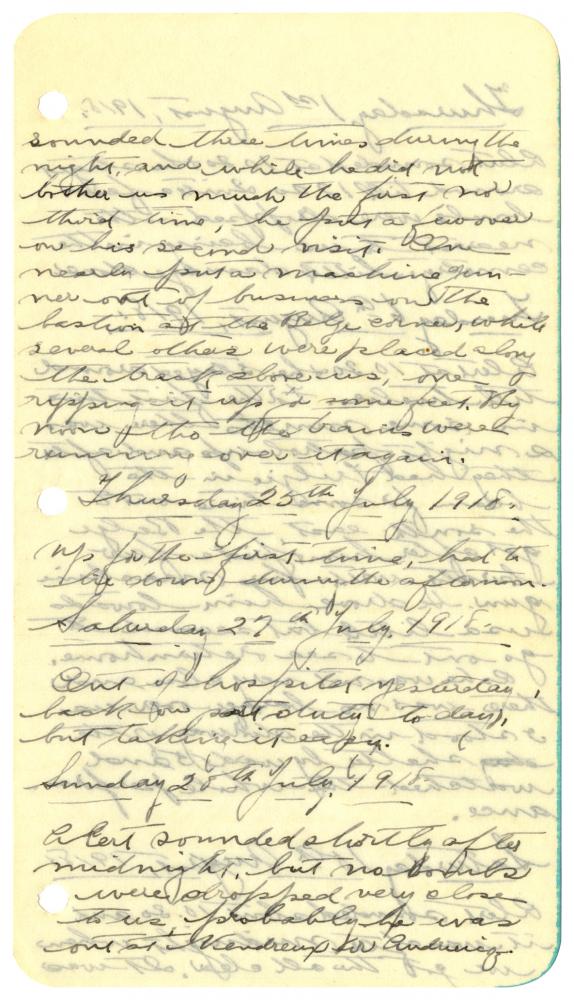 sounded three times during the
night, and while he did not
bother us much the first nor
third time, he put a few over
on his second visit. One
nearly put a machine gun-
ner out of business on the
bastion at the Belge corner, while
several others were placed along
the track above us, one
ripping it up some feet. By
noon tho the trains were
running over it again.
Thursday 25th July 1918.
Up for the first time, had to
lie down during the afternoon.
Saturday 27th July 1918.
Out of hospital yesterday,
back on duty today,
but taking it easy.
Sunday 28th July 1918
Alert sounded shortly after
midnight, but no bombs
were dropped very close
to us, probably he was
out at or Audruicq.